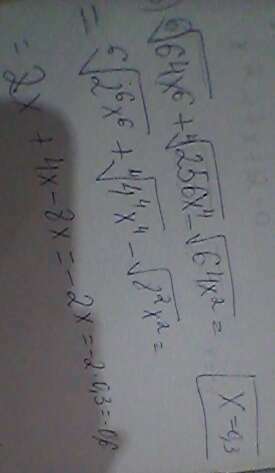 ⁶√64x⁶ + ⁴√256x⁴ - √64x² = x = 0,3
= ⁶√2⁶x⁶ + ⁴√4⁴x⁴ - √8²x² =
= 2x + 4x - 8x = -2x = -2·0,3 = -0,6